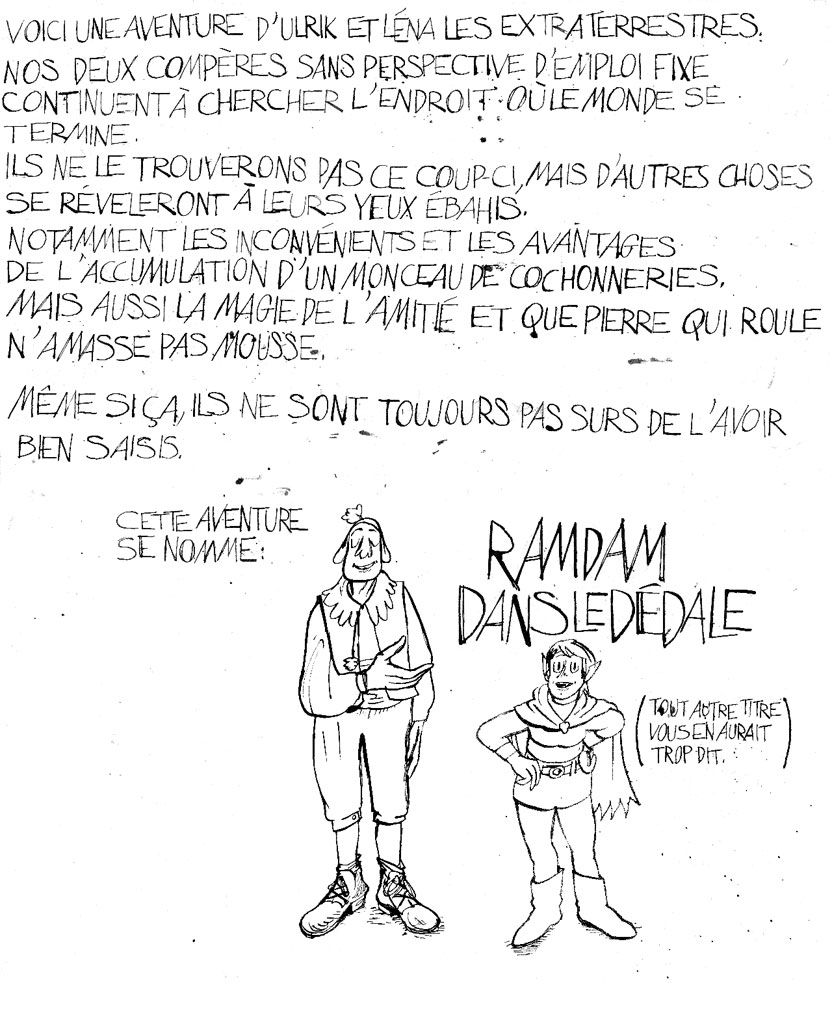 VOICI UNE AVENTURE D'ULRIK ET LÉNA LES EXTRATERRESTRES.
NOS DEUX COMPÈRES SANS PERSPECTIVE D'EMPLOI FIXE
CONTINUENT À CHERCHER L'ENDROIT OÙ LE MONDE SE
TERMINE.
ILS NE LE TROUVERONS PAS CE COUP-CI, MAIS D'AUTRES CHOSES
SE RÉVELERONT À LEURS YEUX ÉBAHIS.
NOTAMMENT LES INCONVÉNIENTS ET LES AVANTAGES
DE L'ACCUMULATION D'UN MONCEAU DE COCHONNERIES.
MAIS AUSSI LA MAGIE DE L'AMITIÉ ET QUE PIERRE QUI ROULE
N'AMASSE PAS MOUSSE.
MÊME SI ÇA, ILS NE SONT TOUJOURS PAS SURS DE L'AVOIR
BIEN SAISIS.
CETTE AVENTURE
SE NOMME:
RAMDAM
DANS LE DÉDALE
(TOUT AUTRE TITRE
VOUS EN AURAIT
TROP DIT.)